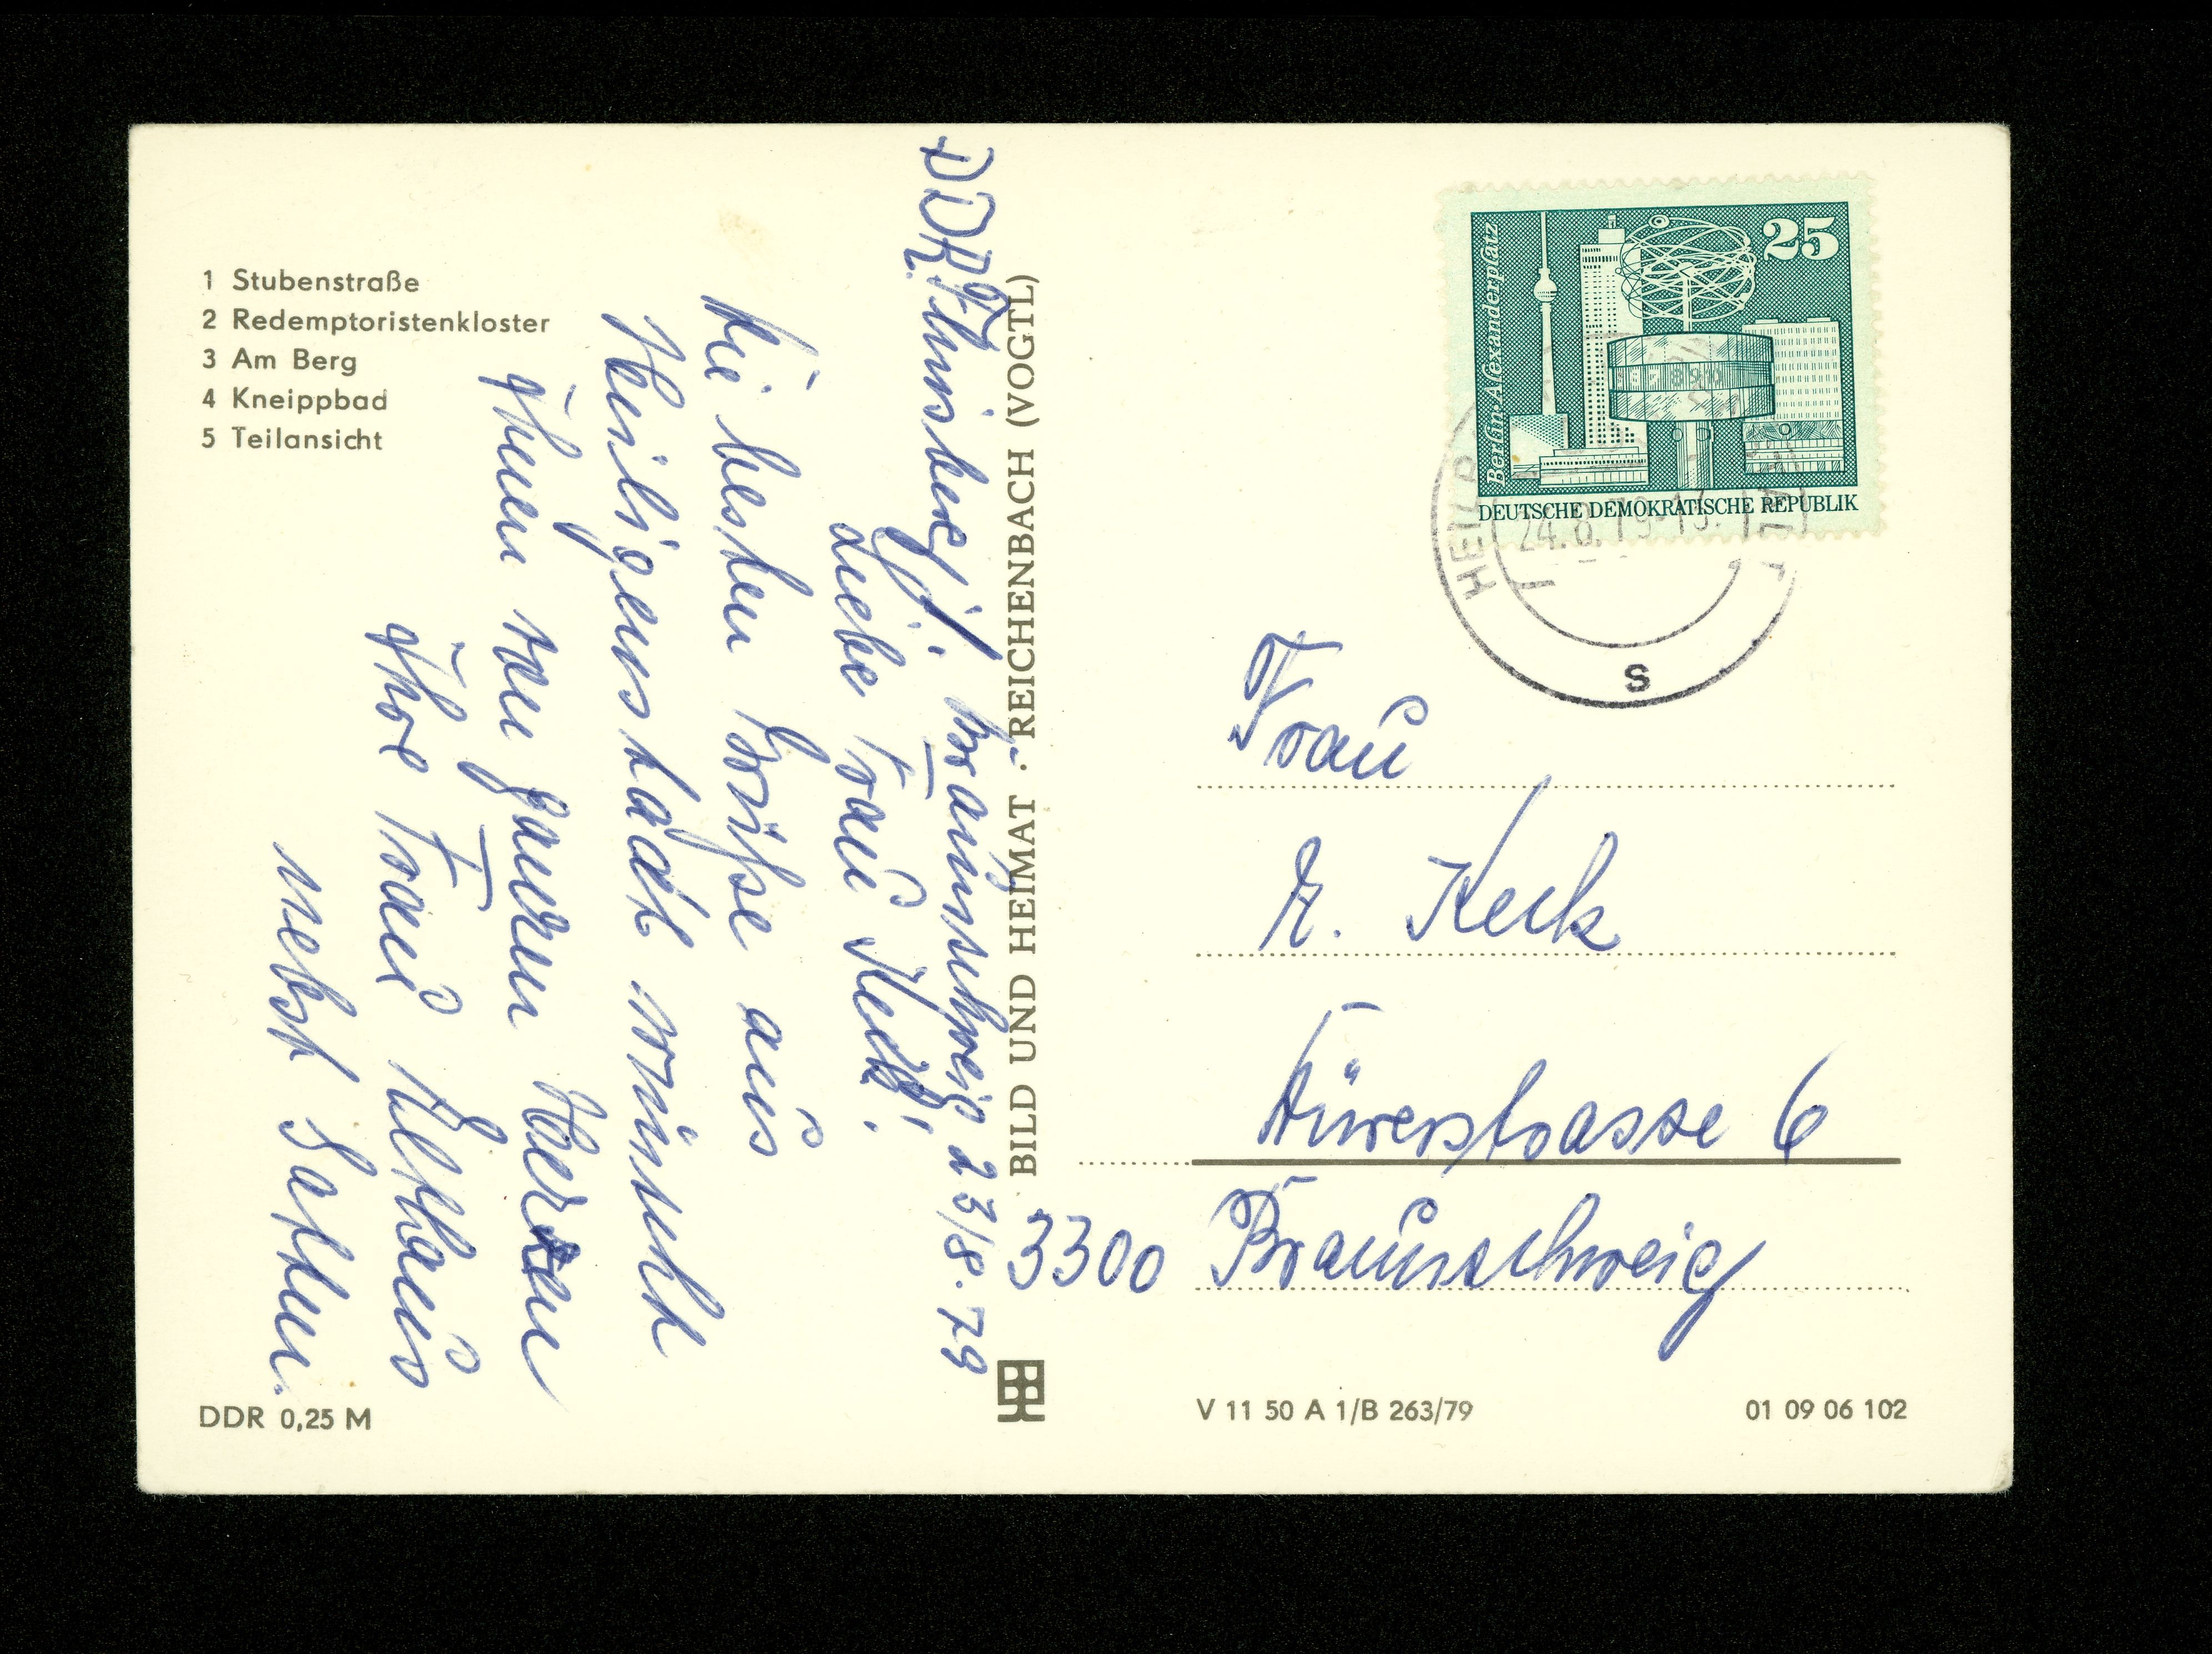 1 Stubenstraße
2 Redemptoristenkloster
3 Am Berg
4 Kneippbad
5 Teilansicht
DDR
Braunschweig 23/8.79
Liebe Frau Keck!
Die besten Grüße aus
Heiligenstadt wünscht
Ihnen von ganzem Herzen
Ihre Frau
nebst Gatten.
DDR 0,25 M
BILD UND HEIMAT · REICHENBACH (VOGTL)
Berlin-Alexanderplatz
25
DEUTSCHE DEMOKRATISCHE REPUBLIK
24.8.79-13
s
Frau
E. Keck
Dürerstrasse 6
3300 Braunschweig
V 11 50 A 1/B 263/79
01 09 06 102